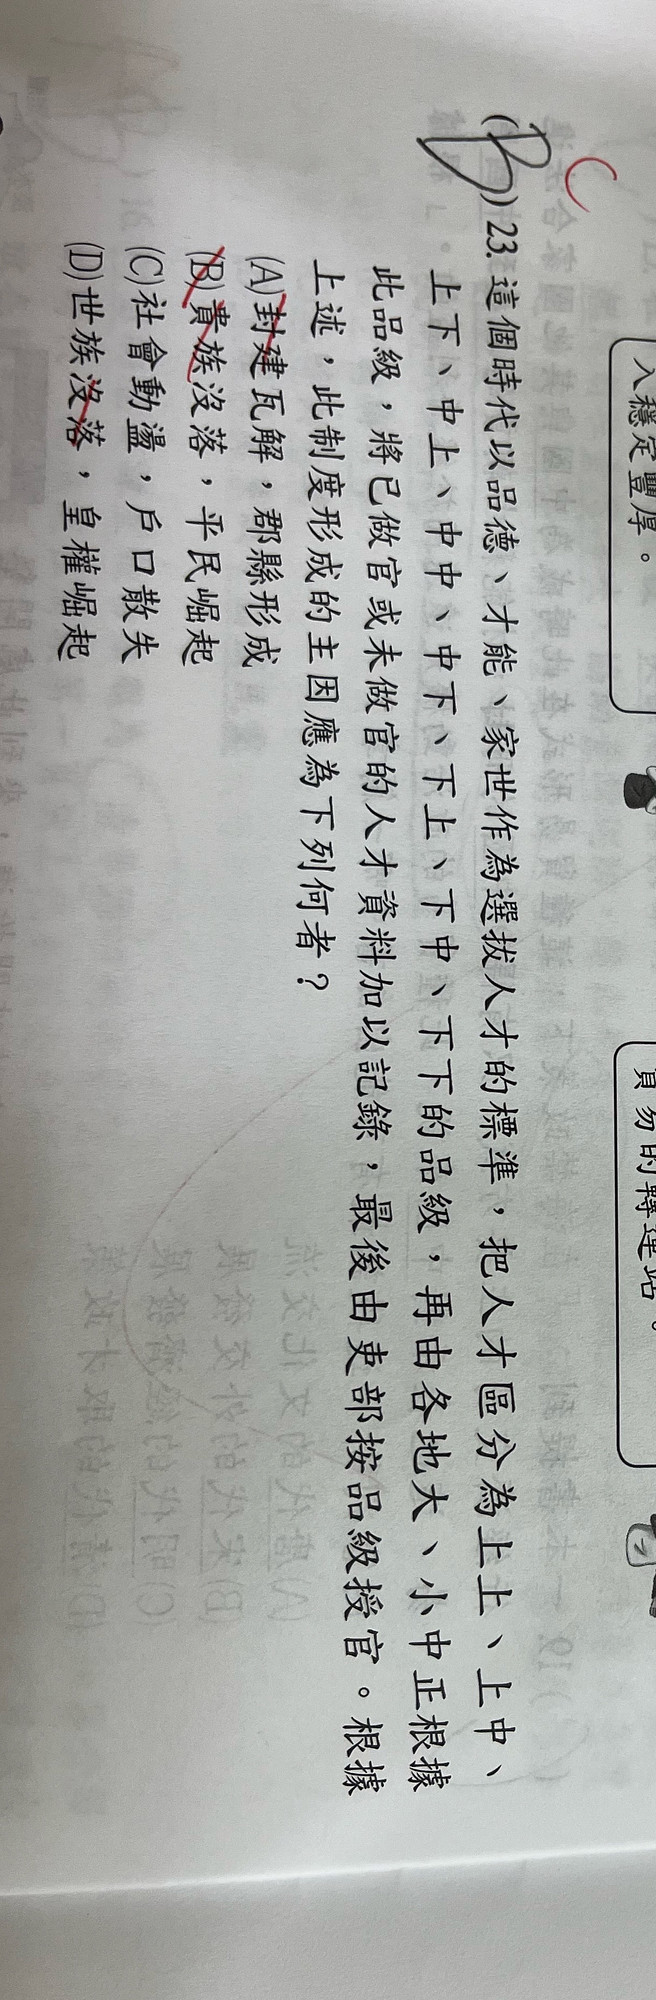 入穩定豐厚。
貿易的轉運站。
C
(B) 23. 這個時代以品德、才能、家世作為選拔人才的標準，把人才區分為上上、上中、
上下、中上、中中、中下、下上、下中、下下的品級，再由各地大、小中正根據
此品級，將已做官或未做官的人才資料加以記錄，最後由吏部按品級授官。根據
上述，此制度形成的主因應為下列何者？
(A)封建瓦解，郡縣形成
(B)貴族沒落，平民崛起
(C)社會動盪，戶口散失
(D)世族沒落，皇權崛起